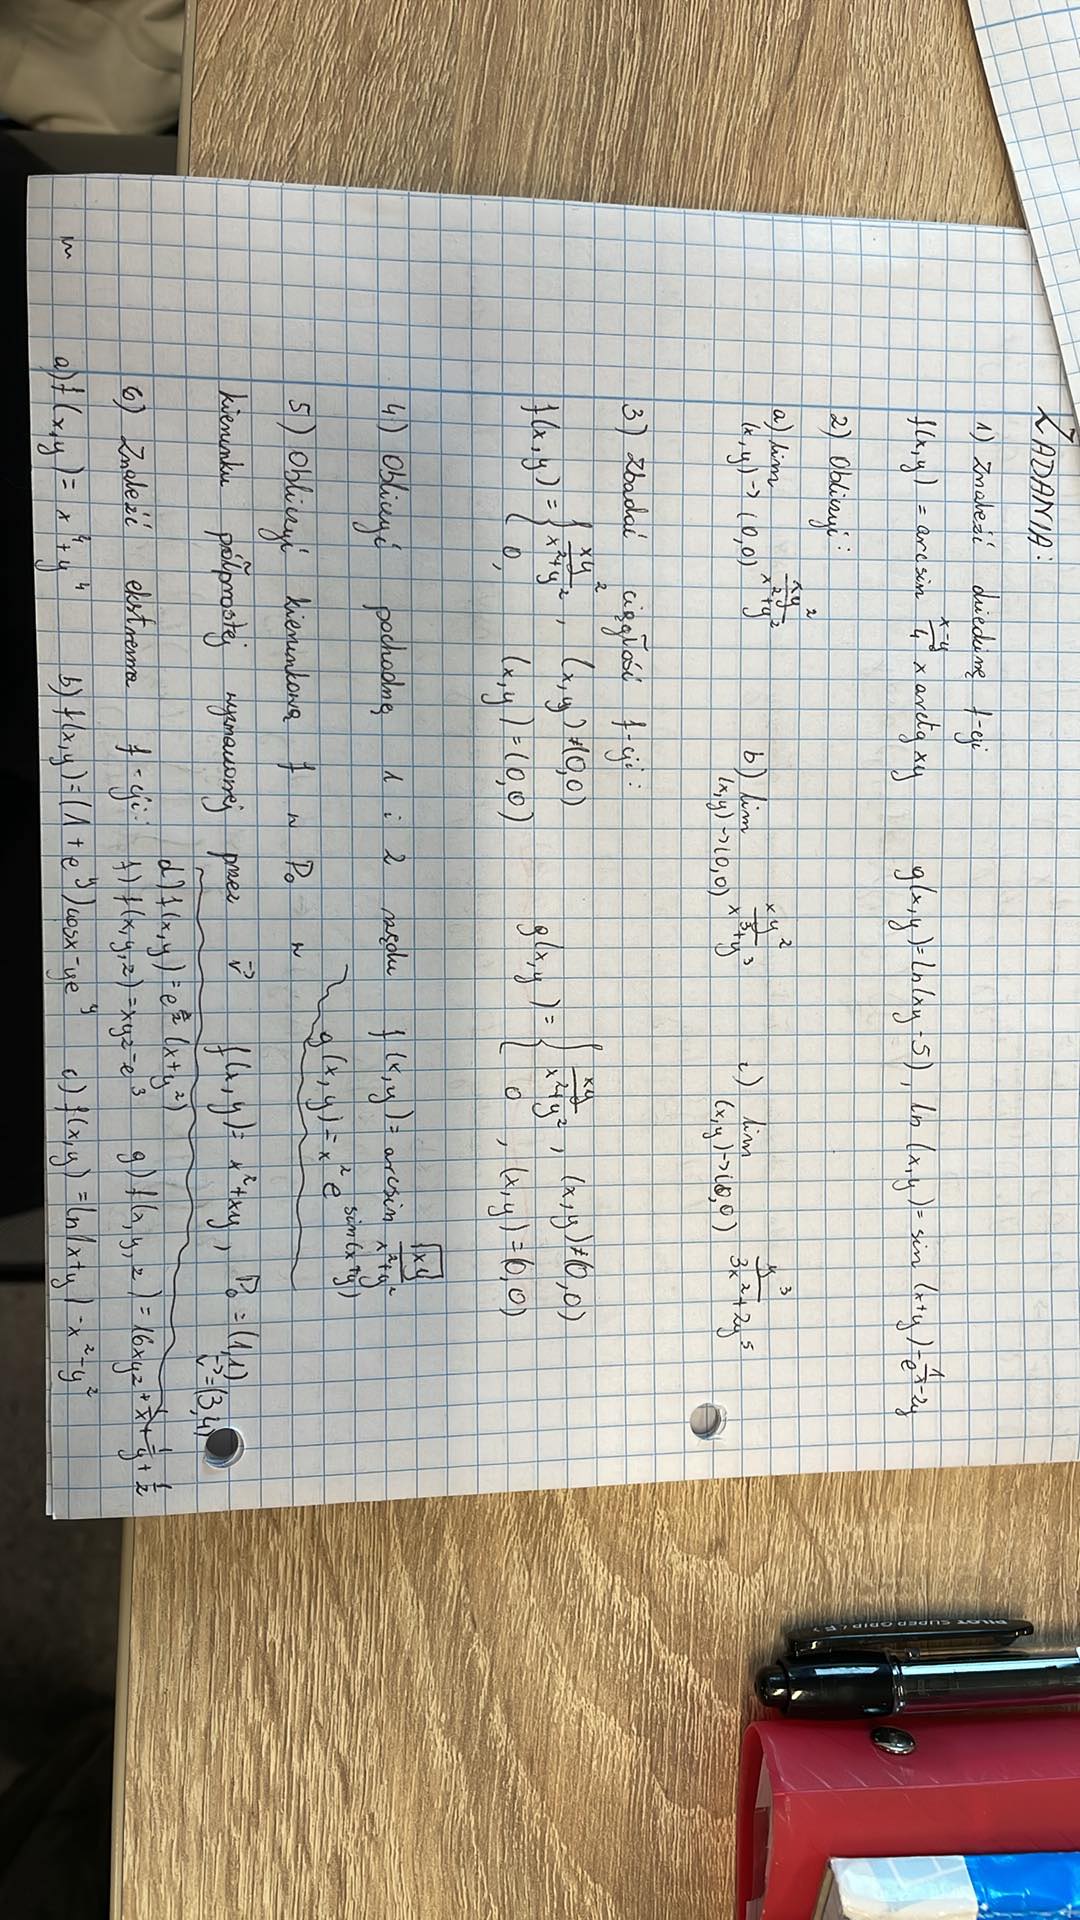 ZADANIA:
1) Znaleźć dziedzinę f-cji
f(x,y) = arcsin (x-y)/4 x arctg xy g(x,y)=ln(xy-5), ln (x,y)= sin (x+y)-e^(1/x)-2y
2) Obliczyć:
a) lim (x,y)->(0,0) xy²/(x²+y²) b) lim (x,y)->(0,0) xy²/(x³+y³) c) lim (x,y)->(0,0) y³/(3x²+2y⁵)
3) Zbadać ciągłość f-cji:
f(x,y) = { xy²/(x²+y²), (x,y)≠(0,0) g(x,y)= { xy/(x²+y²), (x,y)≠(0,0)
0, (x,y)=(0,0) 0, (x,y)=(0,0)
4) Obliczyć pochodną 1 i 2 rzędu f(x,y)= arcsin √xy/(x²+y²)
g(x,y)=x² e^sin(x+y)
5) Obliczyć kierunkową f w P₀ w
kierunku półprostej wyznaczonej przez v⃗ f(x,y)= x²+xy, P₀=(1,1)
v⃗=(3,4)
d) f(x,y)=e (x+y²)
6) Znaleźć ekstrema f-cji: f) f(x,y,z)=xyz-e³ g) f(x,y,z)=16xyz+1/x+1/y+1/z
a) f(x,y)= x⁴+y⁴ b) f(x,y)=(1+e^y)cosx-ye^y c) f(x,y)=ln(x+y)-x²-y²